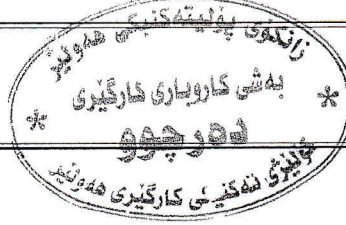 زانكۆی پۆليتەكنيكی هەولێر
بەشی كاروباری كارگێڕی
دەرچوو
كۆلێژی تەكنيكی كارگێڕی هەولێر